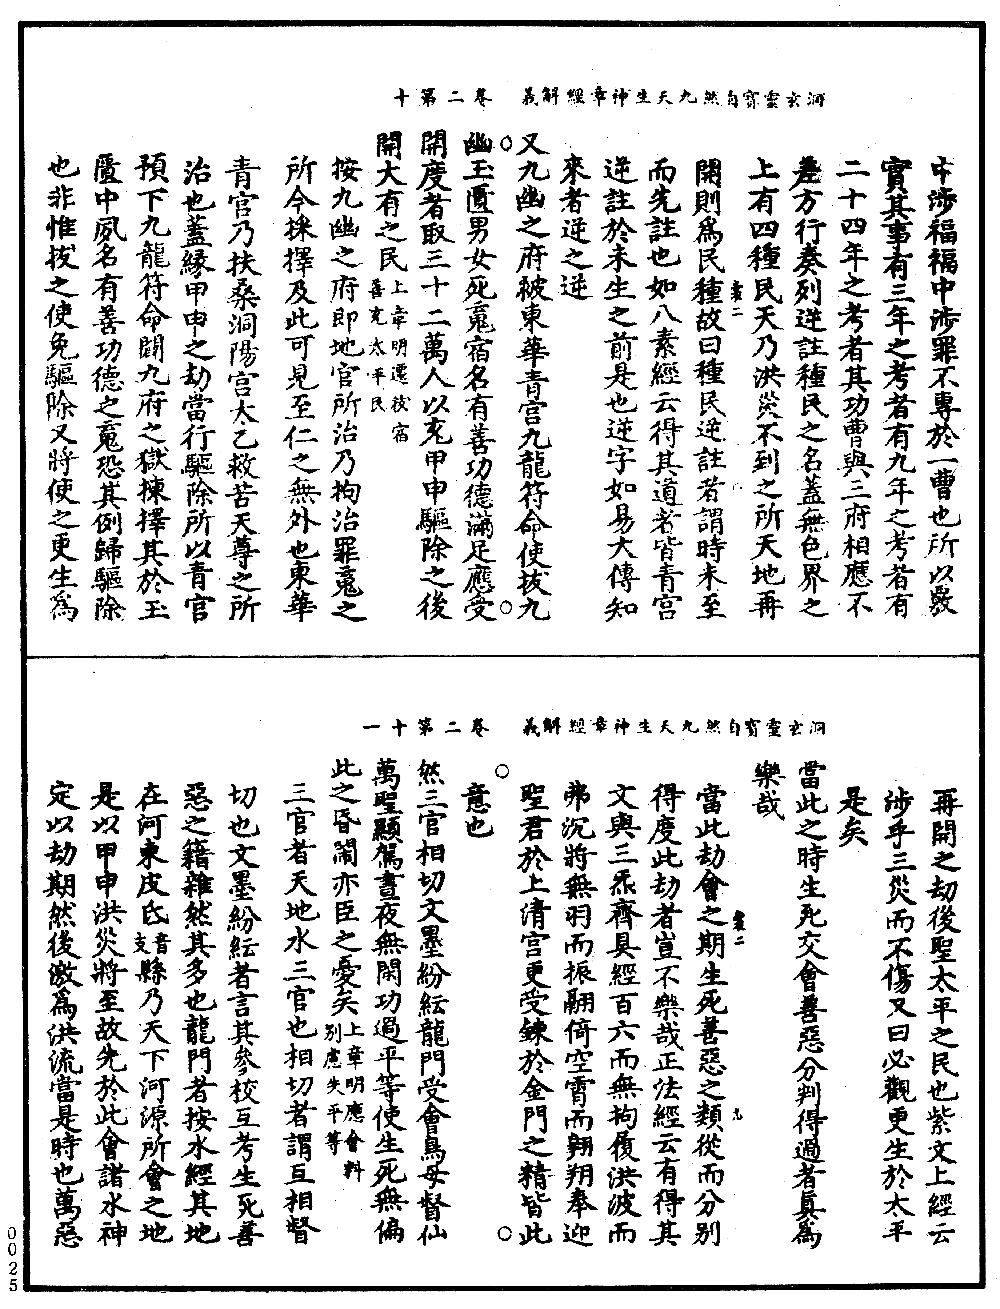 洞玄靈寳自然九天生神章經解義　卷二第十
中涉福福中涉罪不專於一曹也所以覈
實其事有三年之考者有九年之考者有
二十四年之考者其功曹與三府相應不
差方行奏列逆註種民之名蓋無色界之
上有四種民天乃洪災不到之所天地再
開則爲民種故曰種民逆註者謂時未至
而先註也如八素經云得其道者皆青宮
逆註於未生之前是也逆字如易大傳知
來者逆之逆
又九幽之府被東華青宮九龍符命使拔九
幽玉匱男女死䰟宿名有善功德滿足應受
開度者取三十二萬人以充甲申驅除之後
開大有之民上章明遷拔宿善充太平民
按九幽之府即地官所治乃拘治罪䰟之
所今揀擇及此可見至仁之無外也東華
青宮乃扶桑洞陽宮太乙救苦天尊之所
治也蓋緣甲申之劫當行驅除所以青宮
預下九龍符命闢九府之獄揀擇其於玉
匱中夙名有善功德之䰟恐其例歸驅除
也非惟拔之使免驅除又將使之更生爲
洞玄靈寳自然九天生神章經解義　卷二第十一
再開之劫後聖太平之民也紫文上經云
涉乎三災而不傷又曰必觀更生於太平
是矣
當此之時生死交會善惡分判得過者眞爲
樂哉
當此劫會之期生死善惡之類從而分別
得度此劫者豈不樂哉正法經云有得其
文與三炁齊具經百六而無拘履洪波而
弗沉將無羽而振翮倚空霄而翱翔奉迎
聖君於上清宮更受鍊於金門之精皆此
意也
然三官相切文墨紛紜龍門受會鳥母督仙
萬聖顯駕晝夜無閑功過平等使生死無偏
此之昏閙亦臣之憂矣上章明應會料別慮失平等
三官者天地水三官也相切者謂互相督
切也文墨紛紜者言其參校互考生死善
惡之籍雜然其多也龍門者按水經其地
在河東皮氏音支縣乃天下河源所會之地
是以甲申洪災將至故先於此會諸水神
定以劫期然後激爲洪流當是時也萬惡
0025